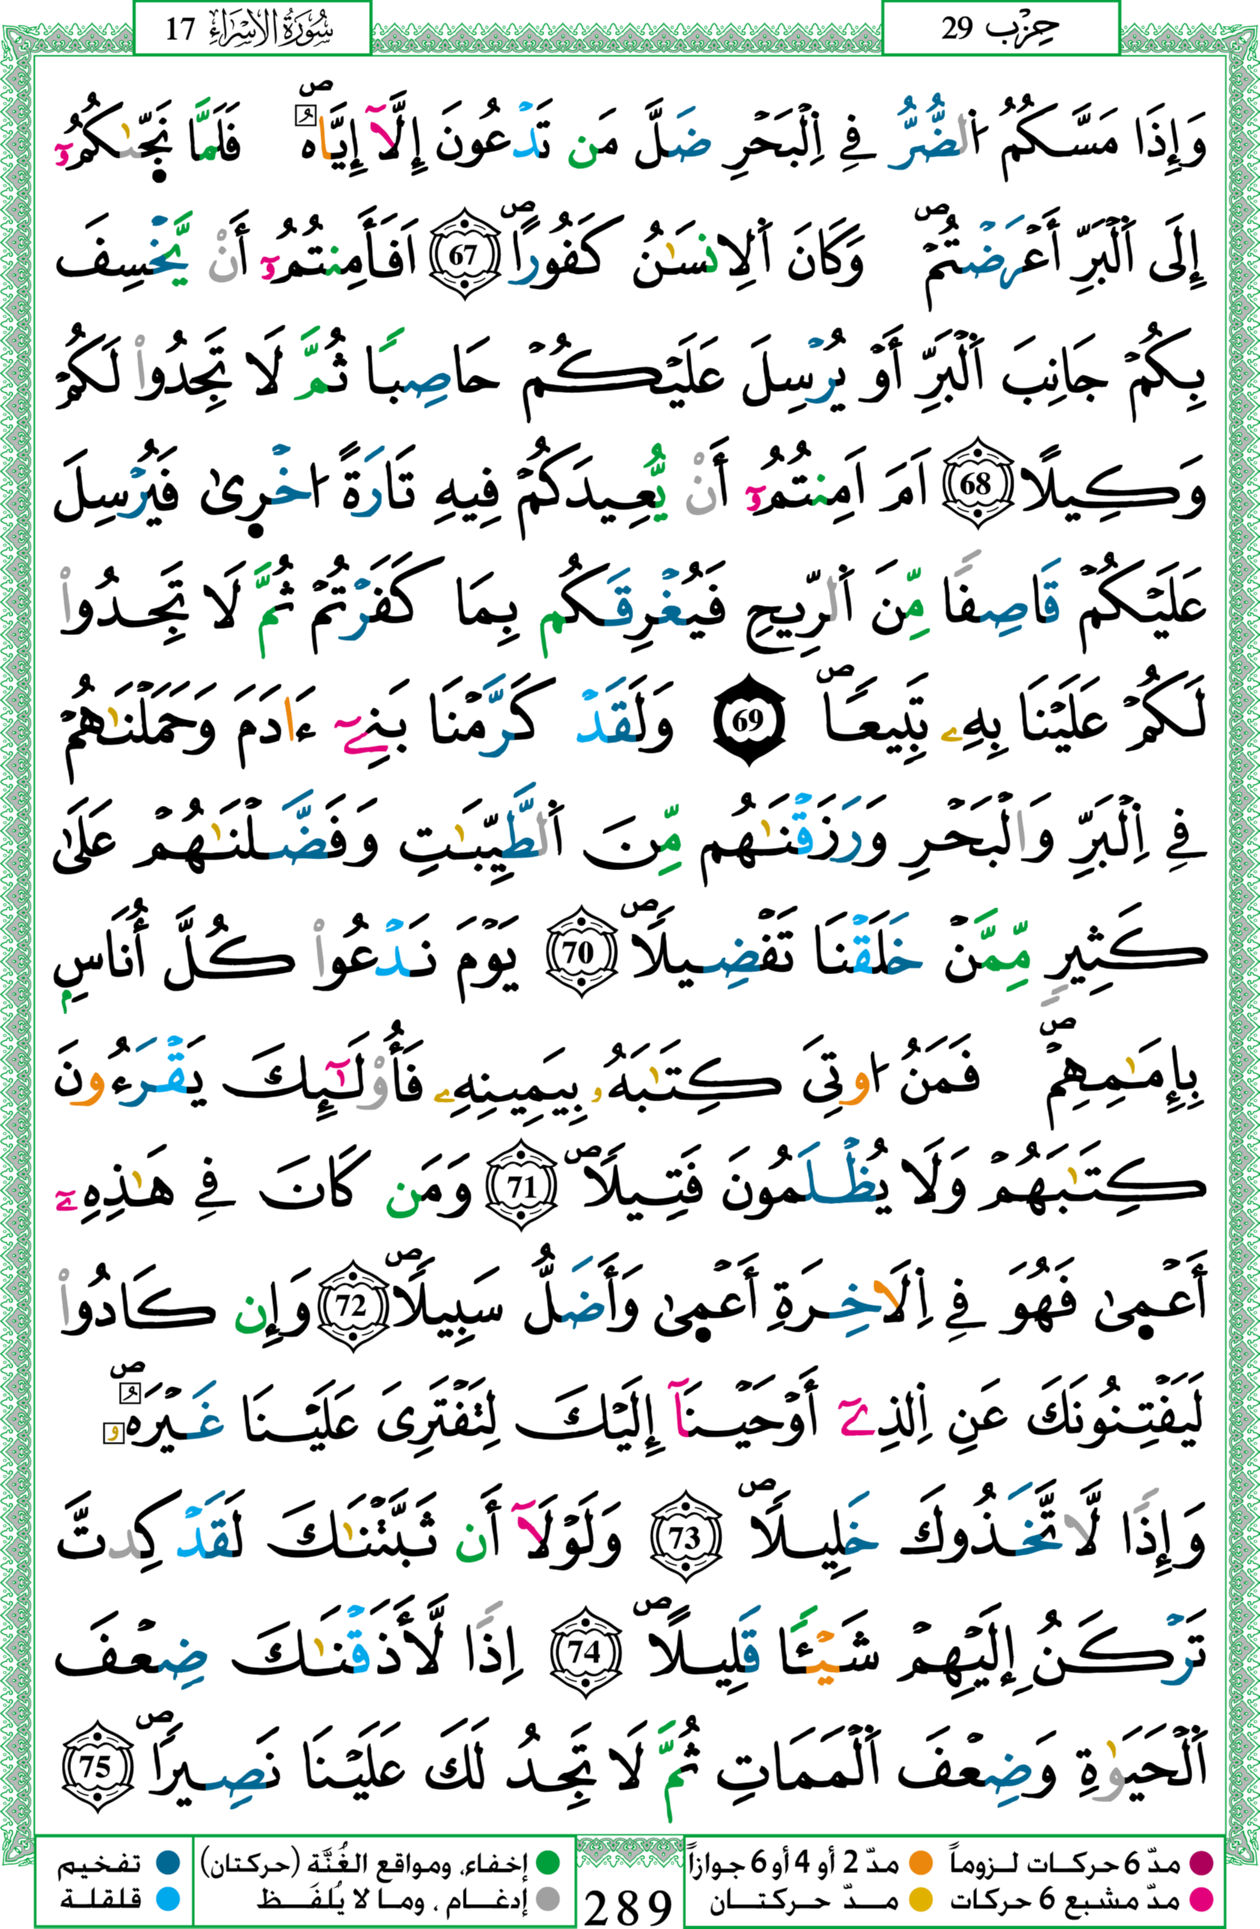 سُورَةُ الْاِسْرَاءِ 17
حِزْب 29
وَإِذَا مَسَّكُمُ اُ۬لضُّرُّ فِے اِ۬لْبَحْرِ ضَلَّ مَن تَدْعُونَ إِلَّآ إِيَّاهُۖ فَلَمَّا نَجّ۪ىٰكُمُۥٓ
إِلَى اَ۬لْبَرِّ أَعْرَضْتُمْۖ وَكَانَ اَ۬لِانسَٰنُ كَفُوراًۖ 67 اَفَأَمِنتُمُۥٓ أَنْ يَّخْسِفَ
بِكُمْ جَانِبَ اَ۬لْبَرِّ أَوْ يُرْسِلَ عَلَيْكُمْ حَاصِباً ثُمَّ لَا تَجِدُواْ لَكُمْ
وَكِيلاً 68 اَمَ اَمِنتُمُۥٓ أَنْ يُّعِيدَكُمْ فِيهِ تَارَةً اُخْر۪ىٰ فَيُرْسِلَ
عَلَيْكُمْ قَاصِفاً مِّنَ اَ۬لرِّيحِ فَيُغْرِقَكُم بِمَا كَفَرْتُمْ ثُمَّ لَا تَجِدُواْ
لَكُمْ عَلَيْنَا بِهِۦ تَبِيعاًۖ 69 وَلَقَدْ كَرَّمْنَا بَنِےٓ ءَادَمَ وَحَمَلْنَٰهُمْ
فِے اِ۬لْبَرِّ وَالْبَحْرِ وَرَزَقْنَٰهُم مِّنَ اَ۬لطَّيِّبَٰتِ وَفَضَّلْنَٰهُمْ عَلَىٰ
كَثِيرٍ مِّمَّنْ خَلَقْنَا تَفْضِيلاًۖ 70 يَوْمَ نَدْعُواْ كُلَّ أُنَاسِۢ
بِإِمَٰمِهِمْۖ فَمَنُ اوتِيَ كِتَٰبَهُۥ بِيَمِينِهِۦ فَأُوْلَٰٓئِكَ يَقْرَءُونَ
كِتَٰبَهُمْ وَلَا يُظْلَمُونَ فَتِيلاًۖ 71 وَمَن كَانَ فِے هَٰذِهِۦٓ
أَعْم۪ىٰ فَهُوَ فِے اِ۬لَاخِرَةِ أَعْم۪ىٰ وَأَضَلُّ سَبِيلاًۖ 72 وَإِن كَادُواْ
لَيَفْتِنُونَكَ عَنِ اِ۬لذِےٓ أَوْحَيْنَآ إِلَيْكَ لِتَفْتَرِيَ عَلَيْنَا غَيْرَهُۥۖ
وَإِذاً لَّاتَّخَذُوكَ خَلِيلاًۖ 73 وَلَوْلَآ أَن ثَبَّتْنَٰكَ لَقَدْ كِدتَّ
تَرْكَنُ إِلَيْهِمْ شَيْـٔاً قَلِيلاًۖ 74 اِذاً لَّأَذَقْنَٰكَ ضِعْفَ
اَ۬لْحَيَوٰةِ وَضِعْفَ اَ۬لْمَمَاتِ ثُمَّ لَا تَجِدُ لَكَ عَلَيْنَا نَصِيراًۖ 75
مدّ 6 حركات لـزوماً مدّ 2 أو 4 أو 6 جوازاً إخفاء، ومواقع الغُنَّة (حركتان) تفخيم
مدّ مشبع 6 حركات مـدّ حـركتـان 289 إدغـام ، ومـا لا يُلفَـظ قلقلة